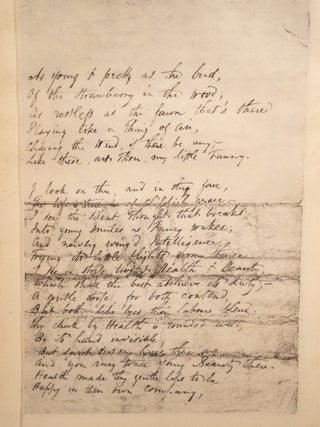 As young & pretty as the bud,
Of the Strawberry in the wood,
As restless as the fawn that's there
Playing like a Thing of air,
Chasing the Wind, if there be any—
Like these, art Thou, my little Fanny.
I look on thee, and in thy face,
I see the silent thought that breaks
Into young smiles as Fancy wakes;
And newly wing'd Intelligence,
Trying its little flights from hence
I see a strife 'twixt Health & Beauty,
Which shall the best achieve its duty;—
A gentle strife for both contend,
But both, like
Thy cheek by Health is rounded well
By its hand invisible,
And you may trace young Beauty there.
Health made thy gentle lips to be
Happy in their own company,